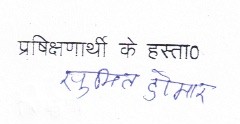 प्रषिक्षणार्थी के हस्ता०
सुमित कुमार